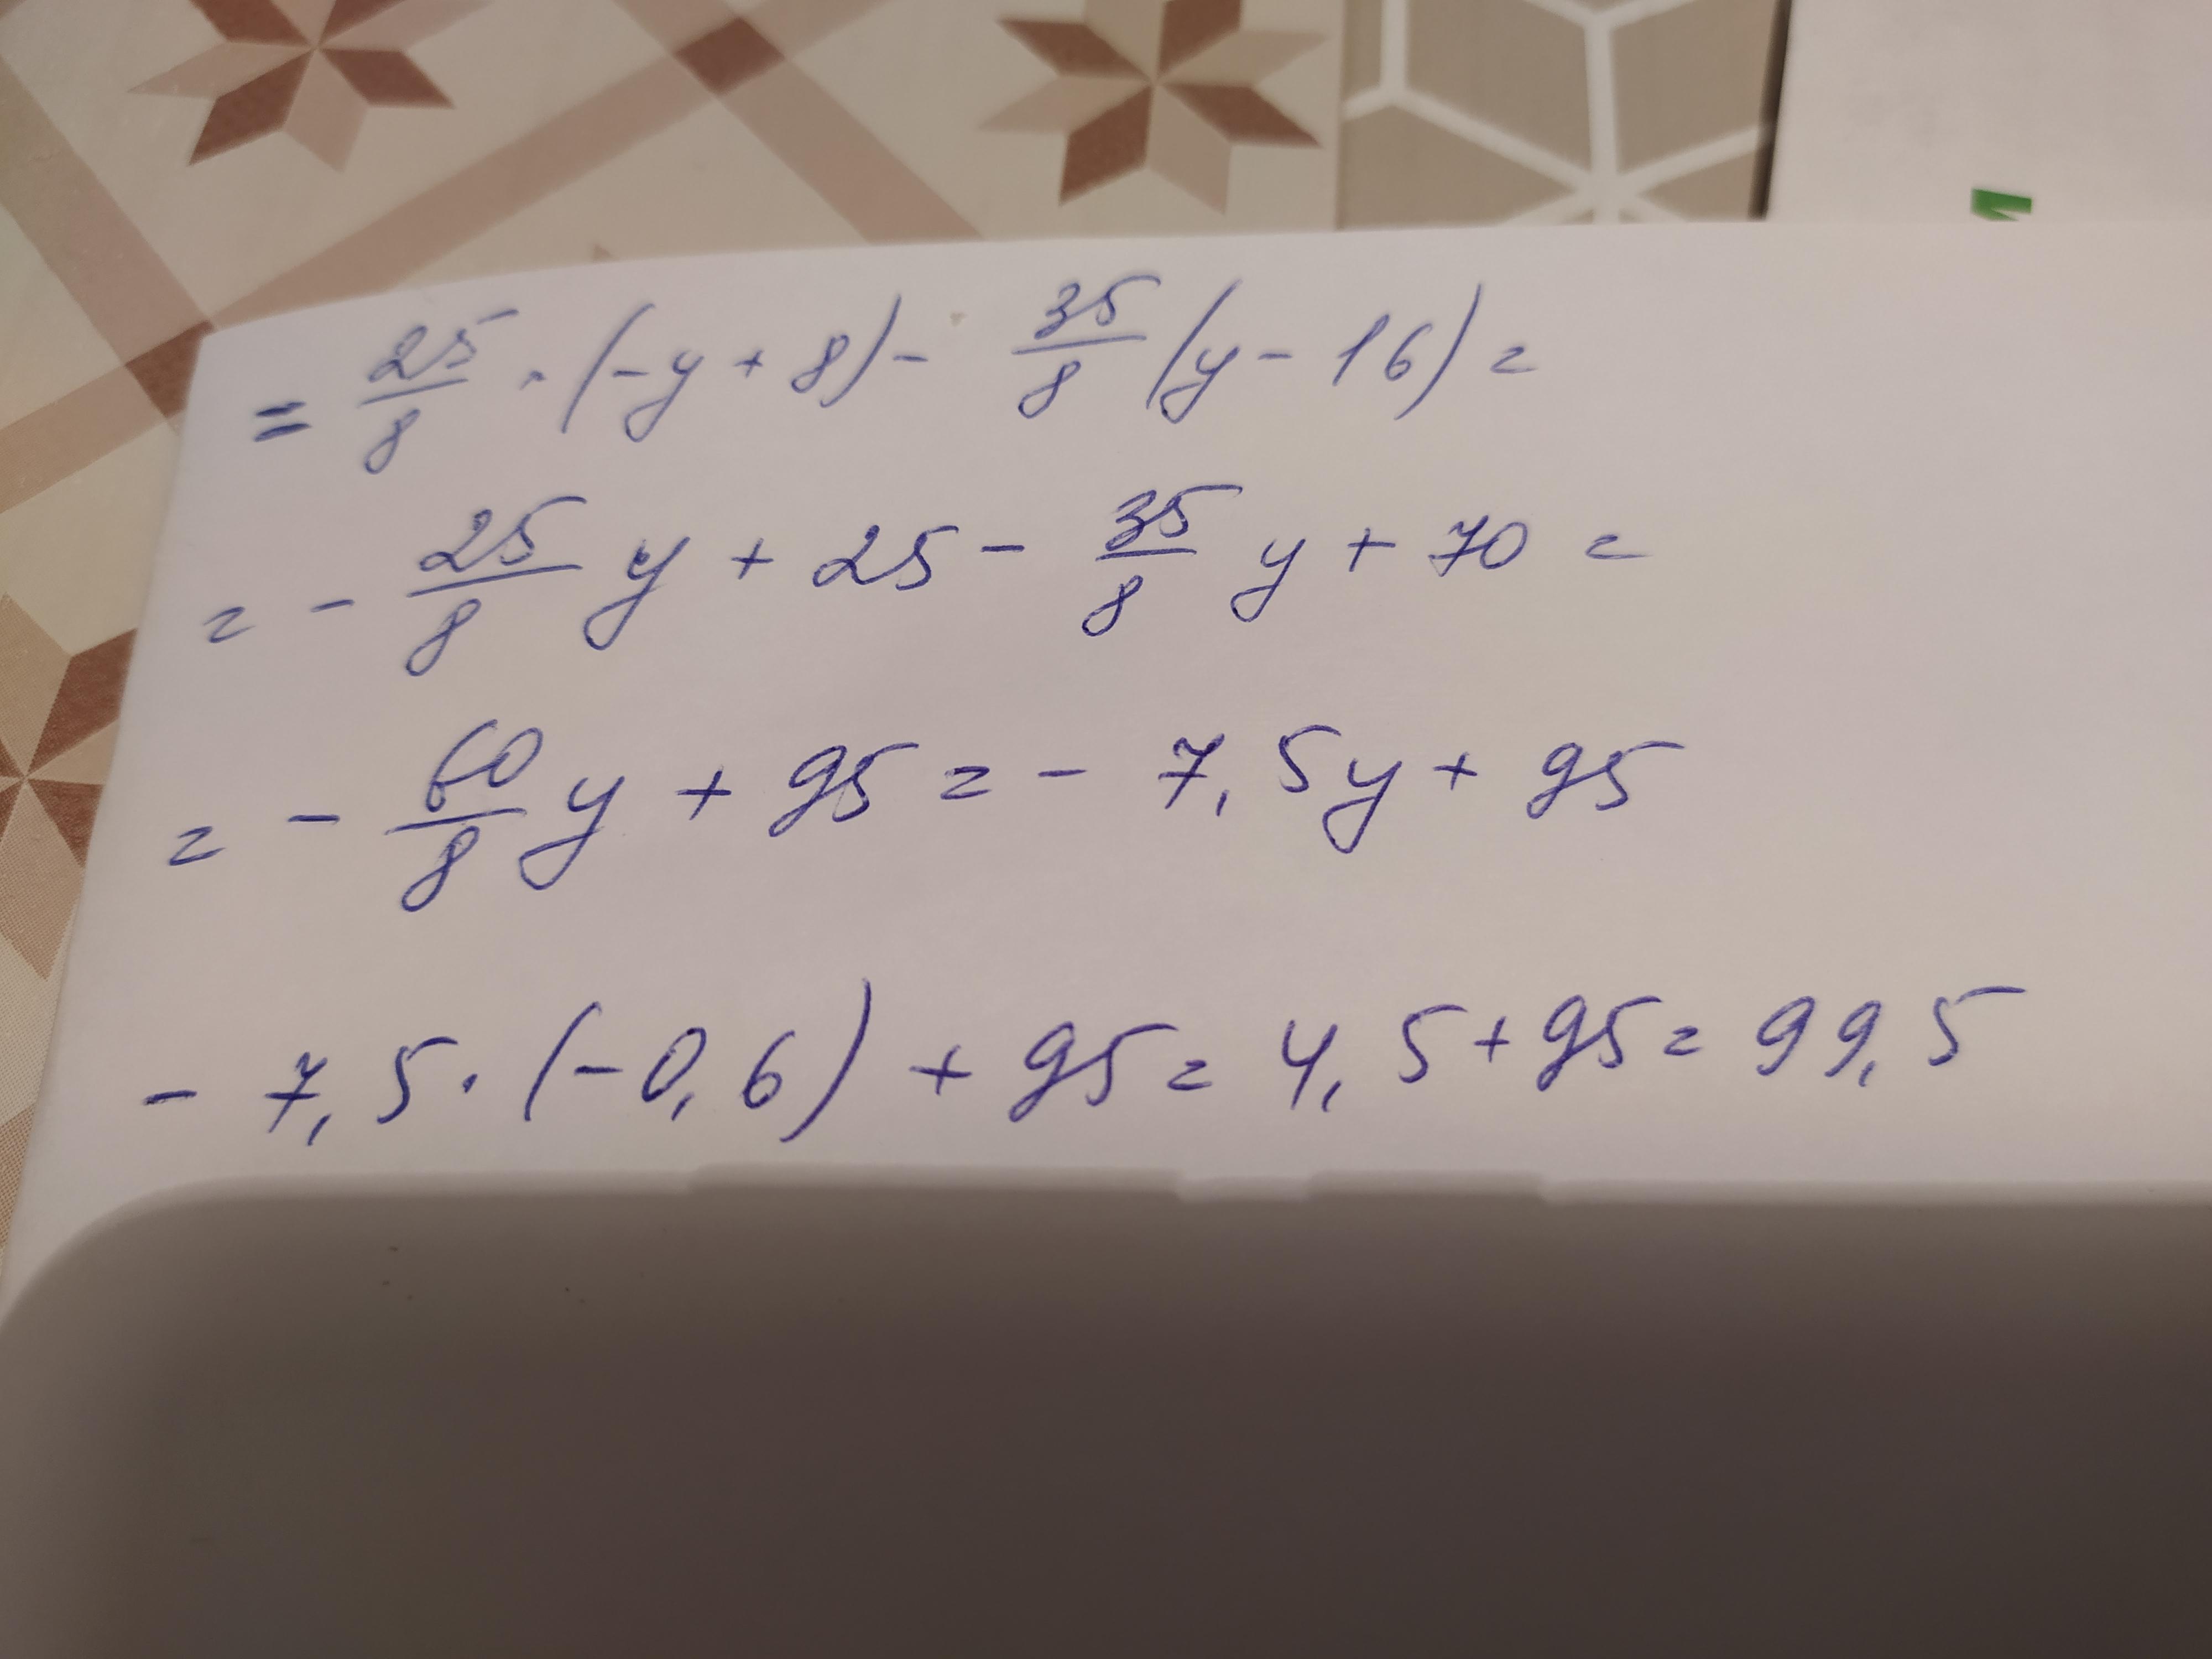 = 25/8 · (-y + 8) - 35/8 (y - 16) =
= - 25/8 y + 25 - 35/8 y + 70 =
= - 60/8 y + 95 = - 7,5y + 95
- 7,5 · (-0,6) + 95 = 4,5 + 95 = 99,5